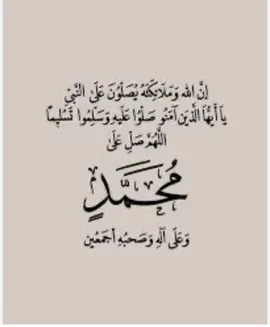 إِنَّ اللهَ وَمَلَائِكَتَهُ يُصَلُّونَ عَلَى النَّبِيِّ
يَا أَيُّهَا الَّذِينَ آمَنُو صَلُّوا عَلَيهِ وَسَلِّمُوا تَسْلِيمًا
اللَّهُمَّ صَلِّ عَلَى
مُحَمَّدٍ
وَعَلَى آلِهِ وَصَحْبِهِ أَجْمَعِين